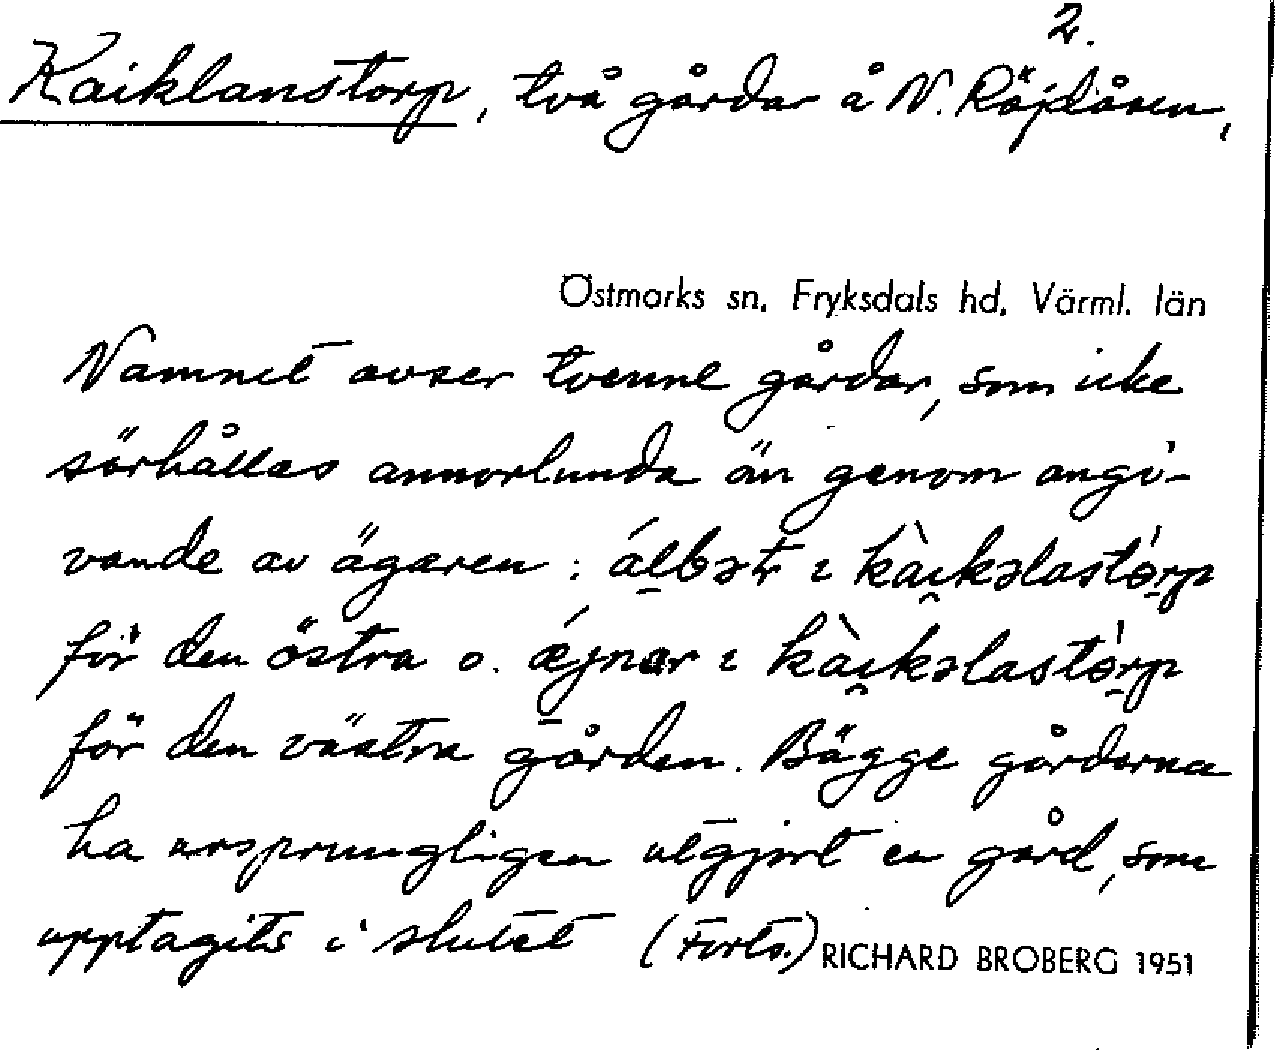 2.
Kaiklanstorp, två gårdar å N. Röjdåsen,
Östmarks sn. Fryksdals hd. Värml. län
Namnet avser tvenne gårdar, som icke
särhållas annorlunda än genom angi-
vande av ägaren: álbət ɩ kàɩkəlastórp
för den östra o. ǽjnar ɩ kàɩkəlastórp
för den västra gården. Bägge gårdarna
ha ursprungligen utgjort en gård, som
upptagits i slutet (Forts.) RICHARD BROBERG 1951